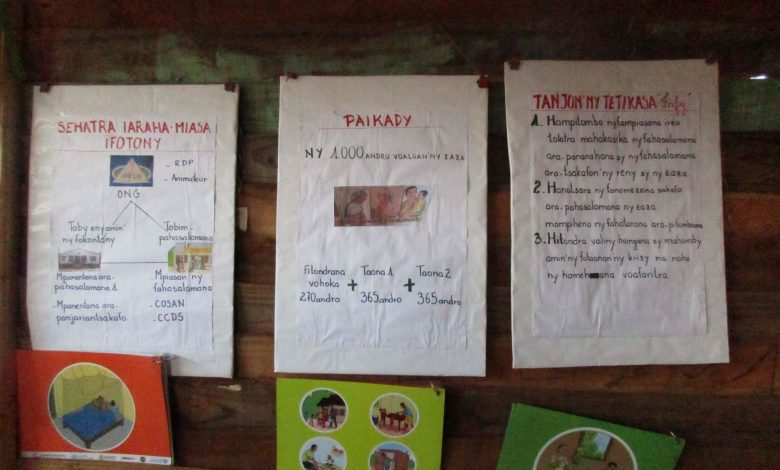 SEHATRA IARAHA-MIASA
IFOTONY
- RDP
- Animateur
ONG
Toby eny amin'
ny fokontany
Tobim-
pahasalamana
Mpanentana ara-
pahasalamana 1.
- Mpanentana ara-
panjariantsakafo
- Mpiasan'ny
fahasalamana
- COSAN
- CCDS
PAIKADY
NY 1000 ANDRO VOALOAN'NY ZAZA
Fitondrana
vohoka
270 andro
+
Taona 1
365 andro
+
Taona 2
365 andro
TANJON'NY TETIKASA
1. Hampitombo ny fampiasana ireo
tolotra mahakasika ny fahasalamana
ara-pananahana sy ny fahasalamana
ara-tsakafon'ny reny sy ny zaza
2. Hanatsara ny fanomezana sakafo
ara-pahasalamana ny zaza
mampihena ny fahatarana ara-pitomboana
3. Hitondra valiny haingana sy mahomby
amin'ny fitsonan'ny krizy na noho
ny hameh ana voafaritra.